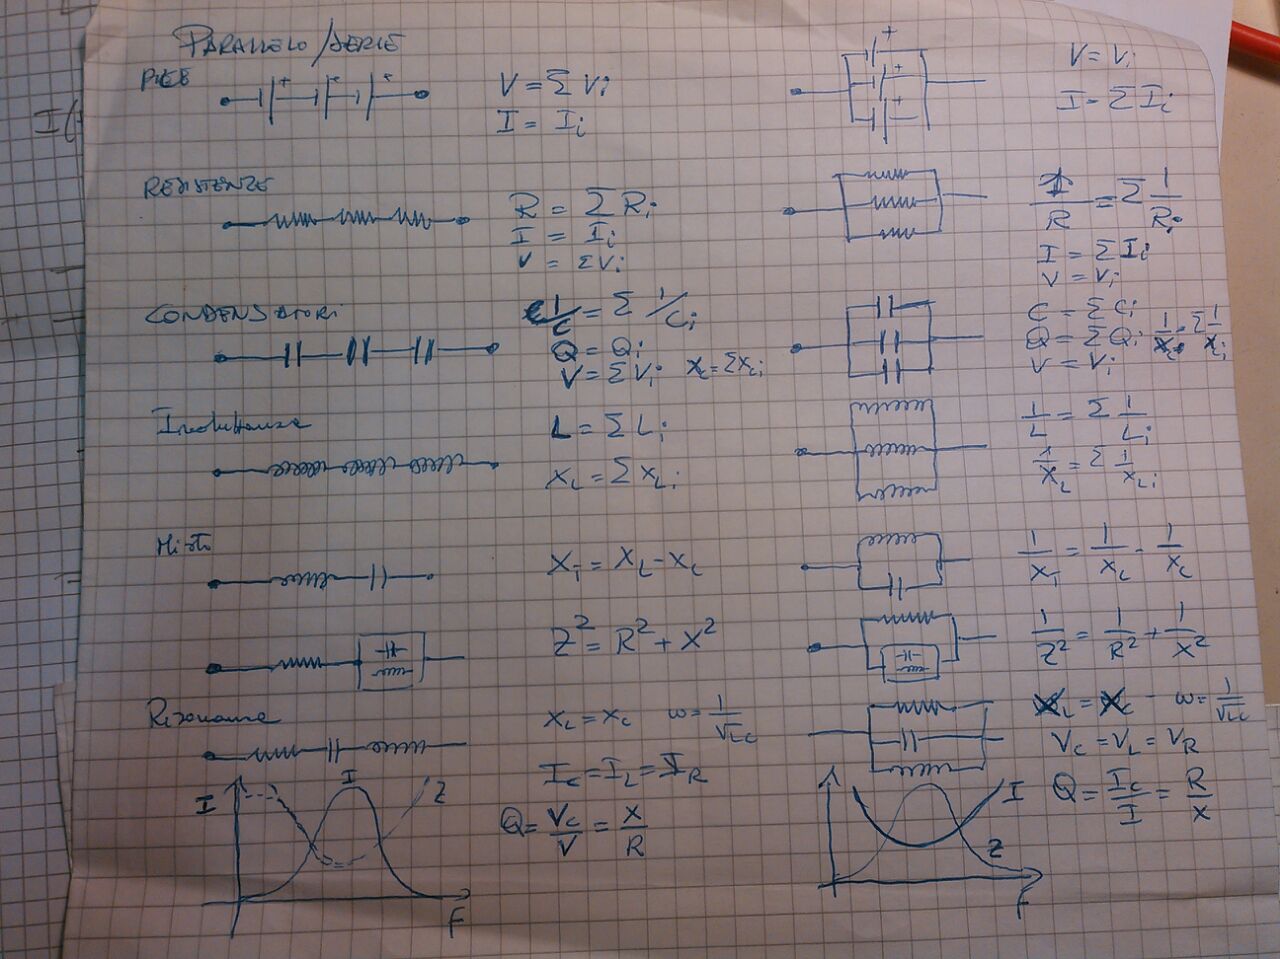 PARALLELO/SERIE
PILE
V = Σ Vi
I = Ii
V = Vi
I = Σ Ii
I(
RESISTENZE
R = Σ Ri
I = Ii
V = ΣVi
1/R = Σ 1/Ri
I = Σ Ii
V = Vi
CONDENSATORI
1/C = Σ 1/Ci
Q = Qi
V = Σ Vi Xc = ΣXci
C = Σ Ci
Q = Σ Qi 1/Xc = Σ 1/Xci
V = Vi
Induttanze
L = Σ Li
XL = Σ XLi
1/L = Σ 1/Li
1/XL = Σ 1/XLi
Misto
XT = XL - Xc
1/XT = 1/XL - 1/Xc
Z² = R² + X²
1/Z² = 1/R² + 1/X²
Risonanza
XL = XC ω = 1/√LC
IC = IL = IR
Q = VC/V = X/R
I
I
Z
F
XL = XC - ω = 1/√LC
VC = VL = VR
Q = IC/I = R/X
I
Z
F